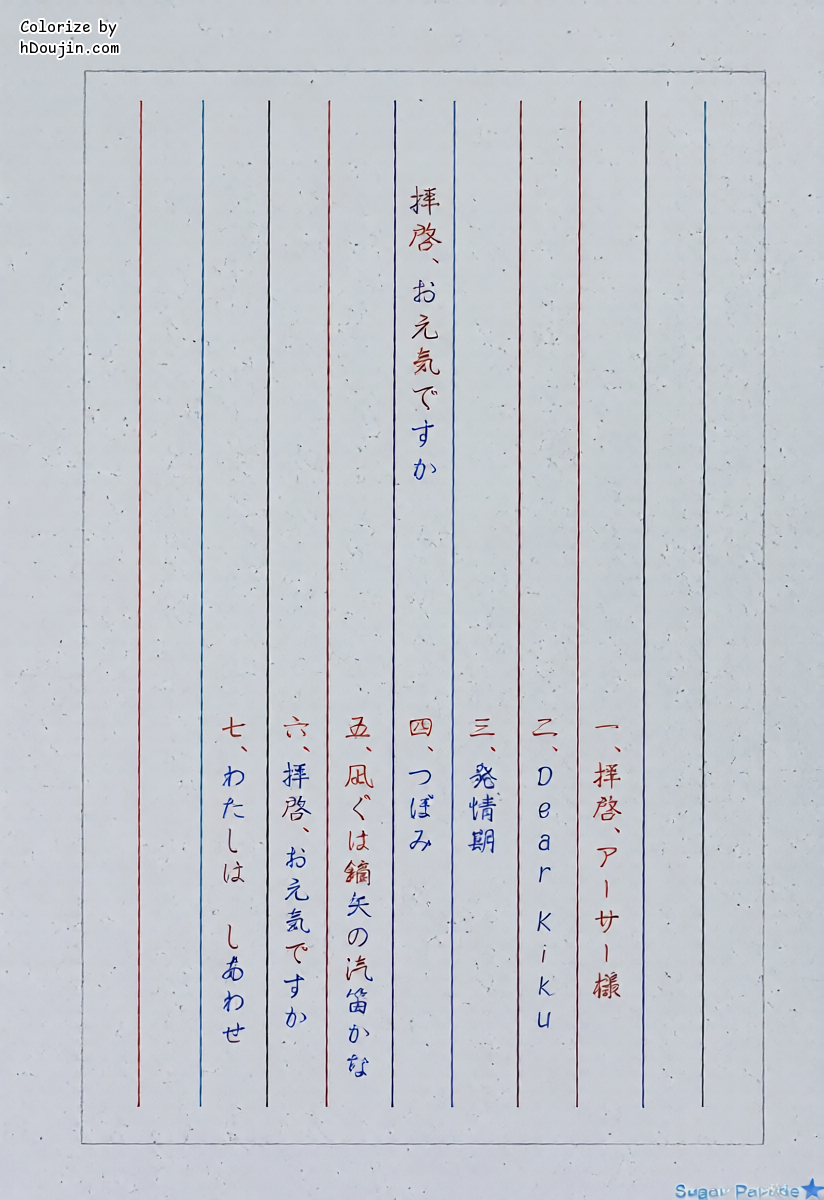 Colorize by
hDoujin.com
拝啓、お元気ですか
一、拝啓、アーサー様
二、Dear Kiku
三、発情期
四、つぼみ
五、凪ぐは鏑矢の汽笛かな
六、拝啓、お元気ですか
七、わたしは しあわせ
Sugar Parade